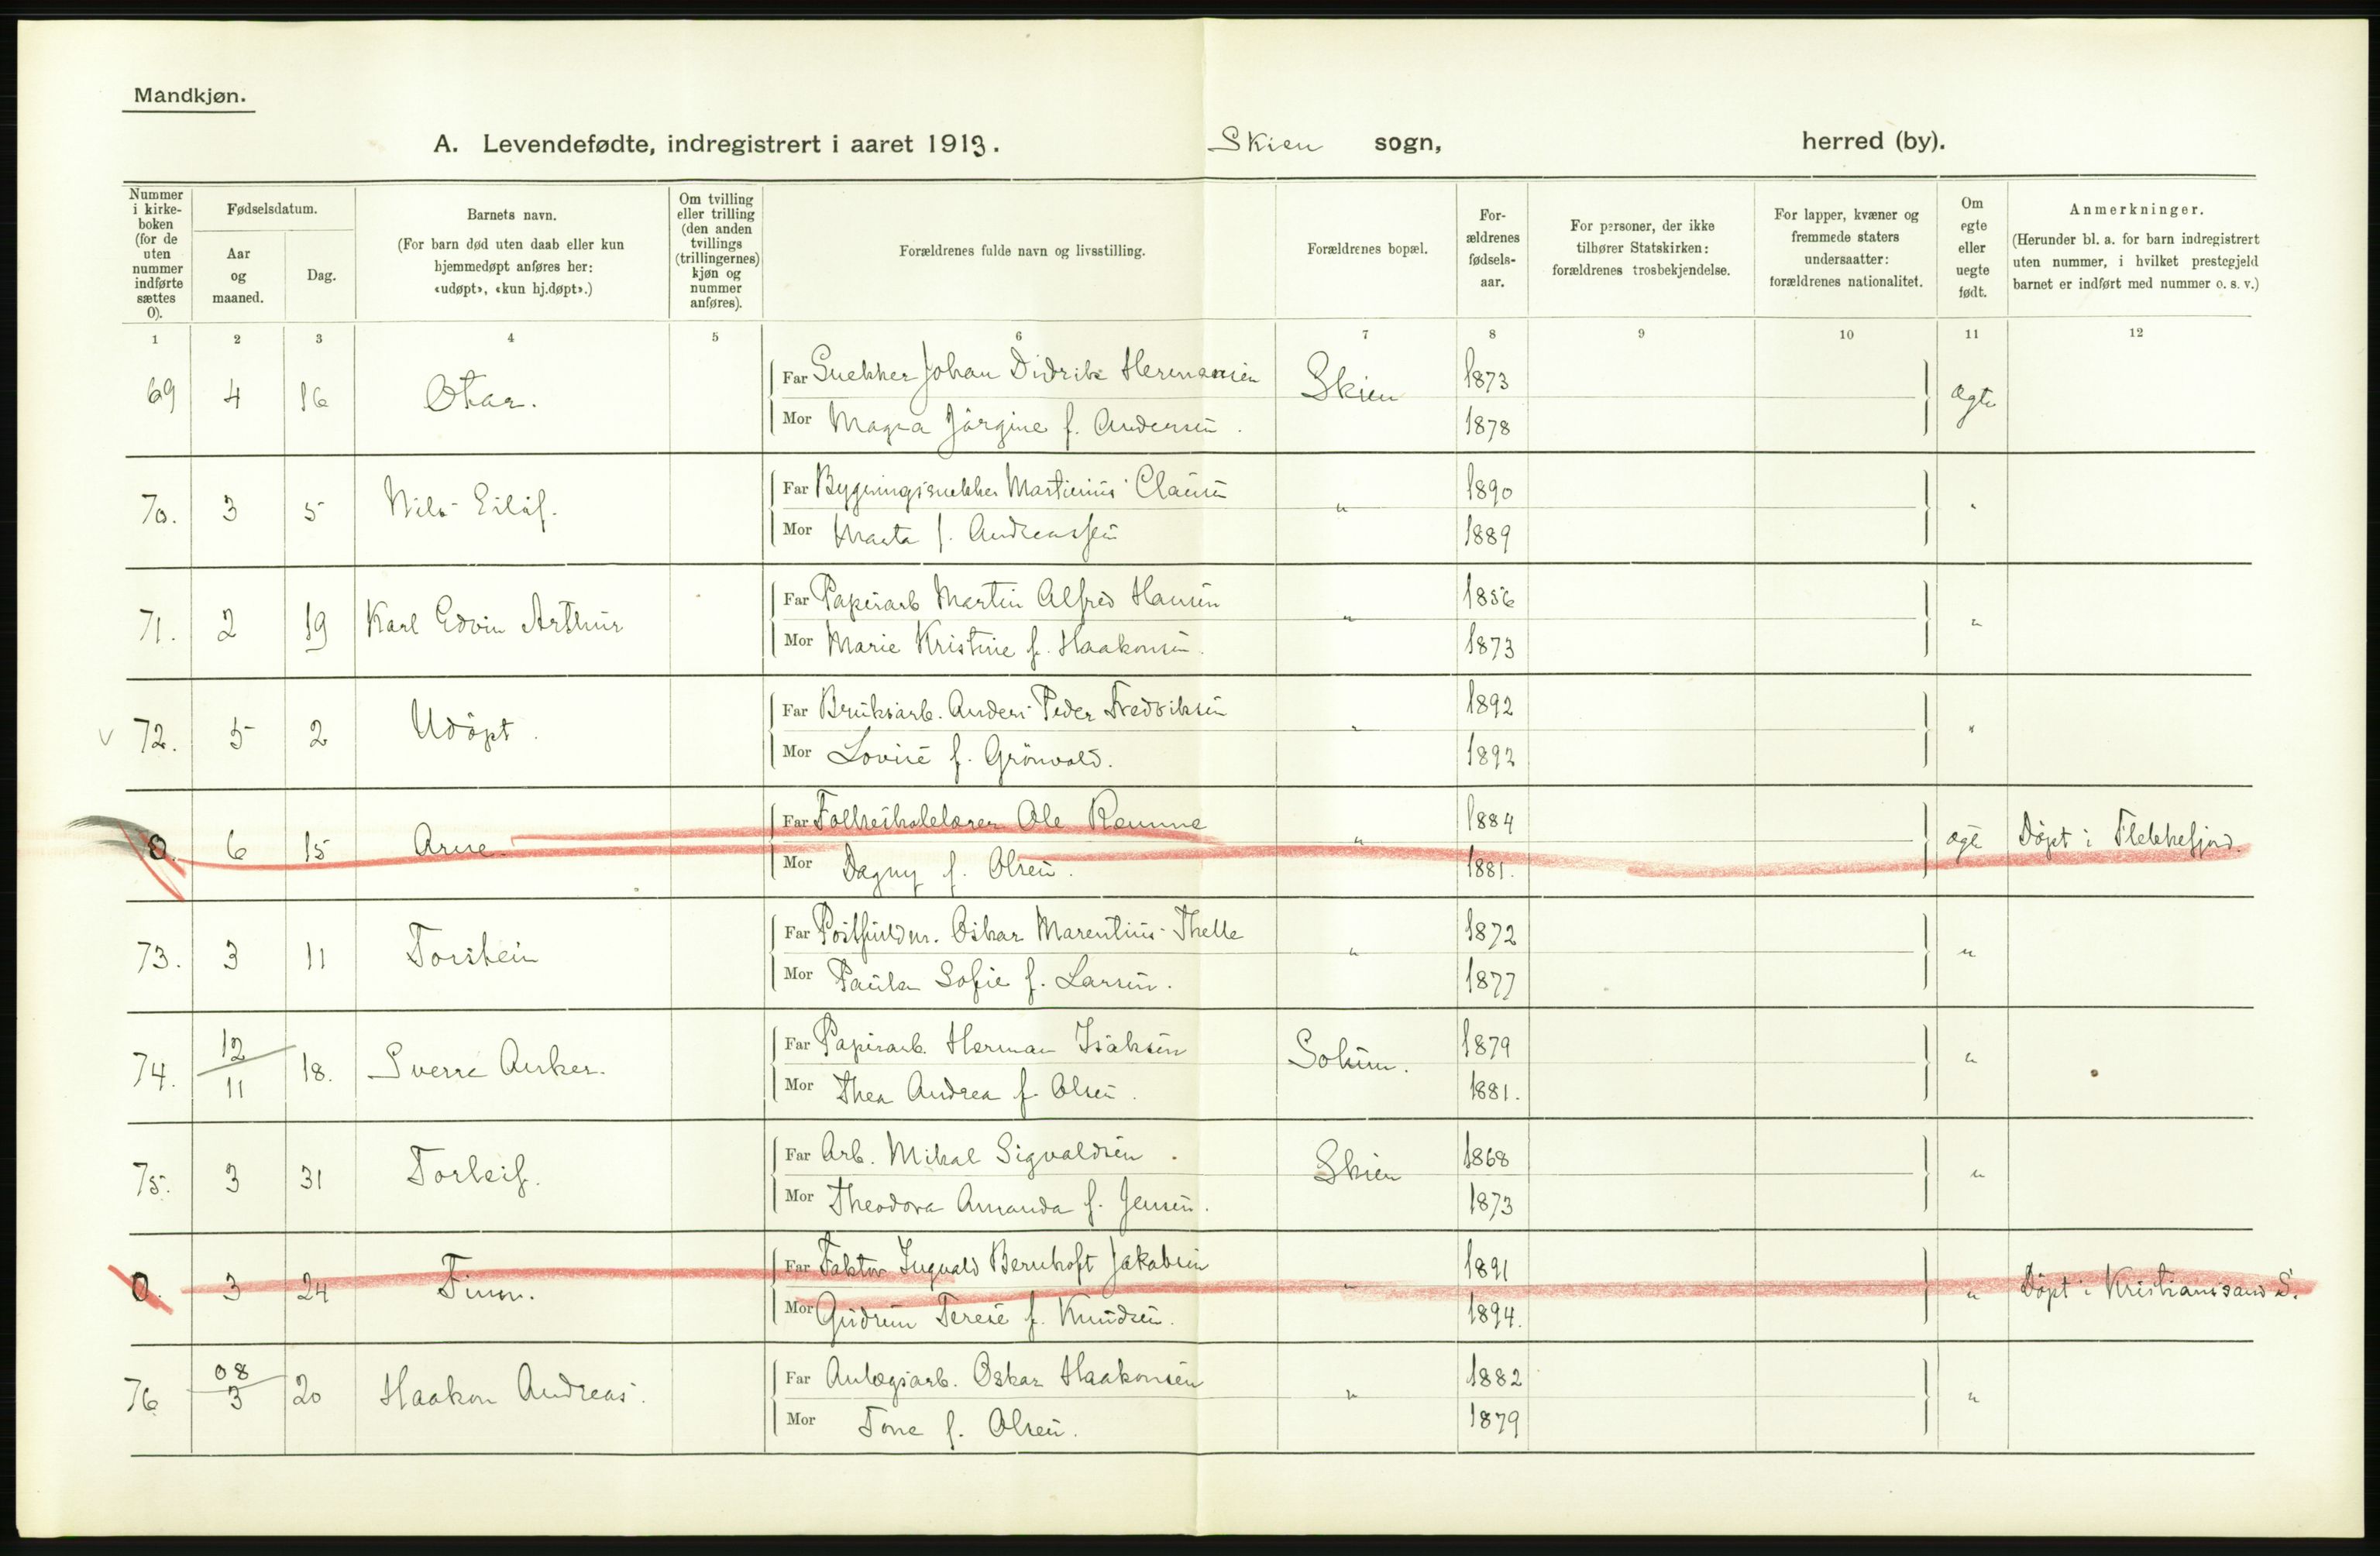 Mandkjøn.
A. Levendefødte, indregistrert i aaret 1913. Skien sogn, herred (by).
Nummer i kirke-boken (for de uten nummer indførte sættes 0).
Fødselsdatum.
Aar og maaned.
Dag.
Barnets navn.
(For barn død uten daab eller kun hjemmedøpt anføres her: «udøpt», «kun hj.døpt».)
Om tvilling eller trilling (den anden tvillings (trillingernes) kjøn og nummer anføres).
Forældrenes fulde navn og livsstilling.
Forældrenes bopæl.
For-ældrenes fødsels-aar.
For personer, der ikke tilhører Statskirken: forældrenes trosbekjendelse.
For lapper, kvæner og fremmede staters undersaatter: forældrenes nationalitet.
Om egte eller uegte født.
Anmerkninger.
(Herunder bl. a. for barn indregistrert uten nummer, i hvilket prestegjeld barnet er indført med nummer o. s. v.)
1 2 3 4 5 6 7 8 9 10 11 12
69 4 16 Otar. Far Snekker Johan Didrik Hermansen Skien 1873 ægte
Mor Magna Jörgine f. Andersen. 1878
70. 3 5 Nils Eilif. Far Bygningssnekker Martinius Clausen " 1890 "
Mor Marta f. Andreassen 1889
71. 2 19 Karl Edvin Arthur Far Papirarb Martin Alfred Hansen " 1856 "
Mor Marie Kristine f. Haakonsen. 1873
v 72. 5 2 Udöpt. Far Bruksarb. Anders Peder Fredriksen " 1892 "
Mor Lovise f. Grönvold. 1892
0. 6 15 Arne. Far Folkeskolelærer Ole Ramme " 1884 ægte Döpt i Flekkefjord.
Mor Dagny f. Olsen. 1881.
73. 3 11 Torstein Far Postfuldm. Oskar Marentius Thelle " 1872 "
Mor Paula Sofie f. Larsen. 1877
74. 12/11 18. Sverre Anker. Far Papirarb. Herman Isaksen Solum. 1879 "
Mor Thea Andrea f. Olsen. 1881.
75. 3 31 Torleif. Far Arb. Mikal Sigvaldsen. Skien 1868 "
Mor Theodora Amanda f. Jensen. 1873
0. 3 24 Finn. Far Faktor Ingvald Bernhoft Jakobsen " 1891 " Döpt i Kristianssand S.
Mor Gudrun Terese f. Knudsen. 1894.
76 08/3 20 Haakon Andreas. Far Anlægsarb. Oskar Haakonsen " 1882 "
Mor Tone f. Olsen. 1879